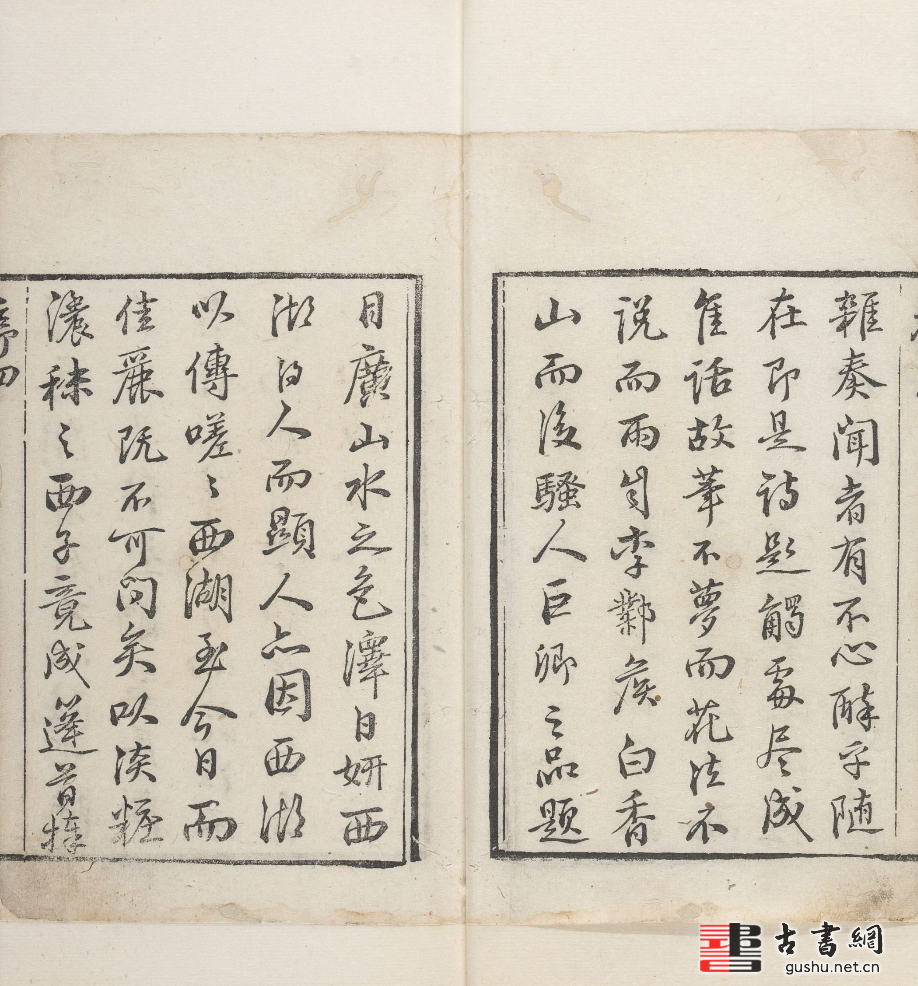 雜奏聞者有不心醉乎隨
在即是詩題觸處尽成
佳話故筆不夢而花法不
説而雨自李鄴侯白香
山而後騷人巨卿之品題
日廣山水之色澤日妍西
湖得人而顯人亦因西湖
以傳嗟〻西湖至今日而
佳麗既不可問矣以淡粧
濃抹之西子竟成蓬首捧
序 四
古書網
gushu.net.cn